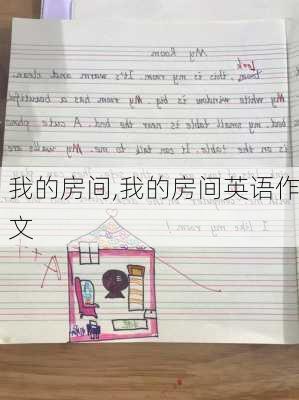 My Room
Look
this is my room. It's warm and clean.
My white window is big. My room has a beautiful
bed, my small table is near the bed. A cute phone
is on the table. It can talk to me. My walls are
我的房间,我的房间英语作
文
I like my room!
A+